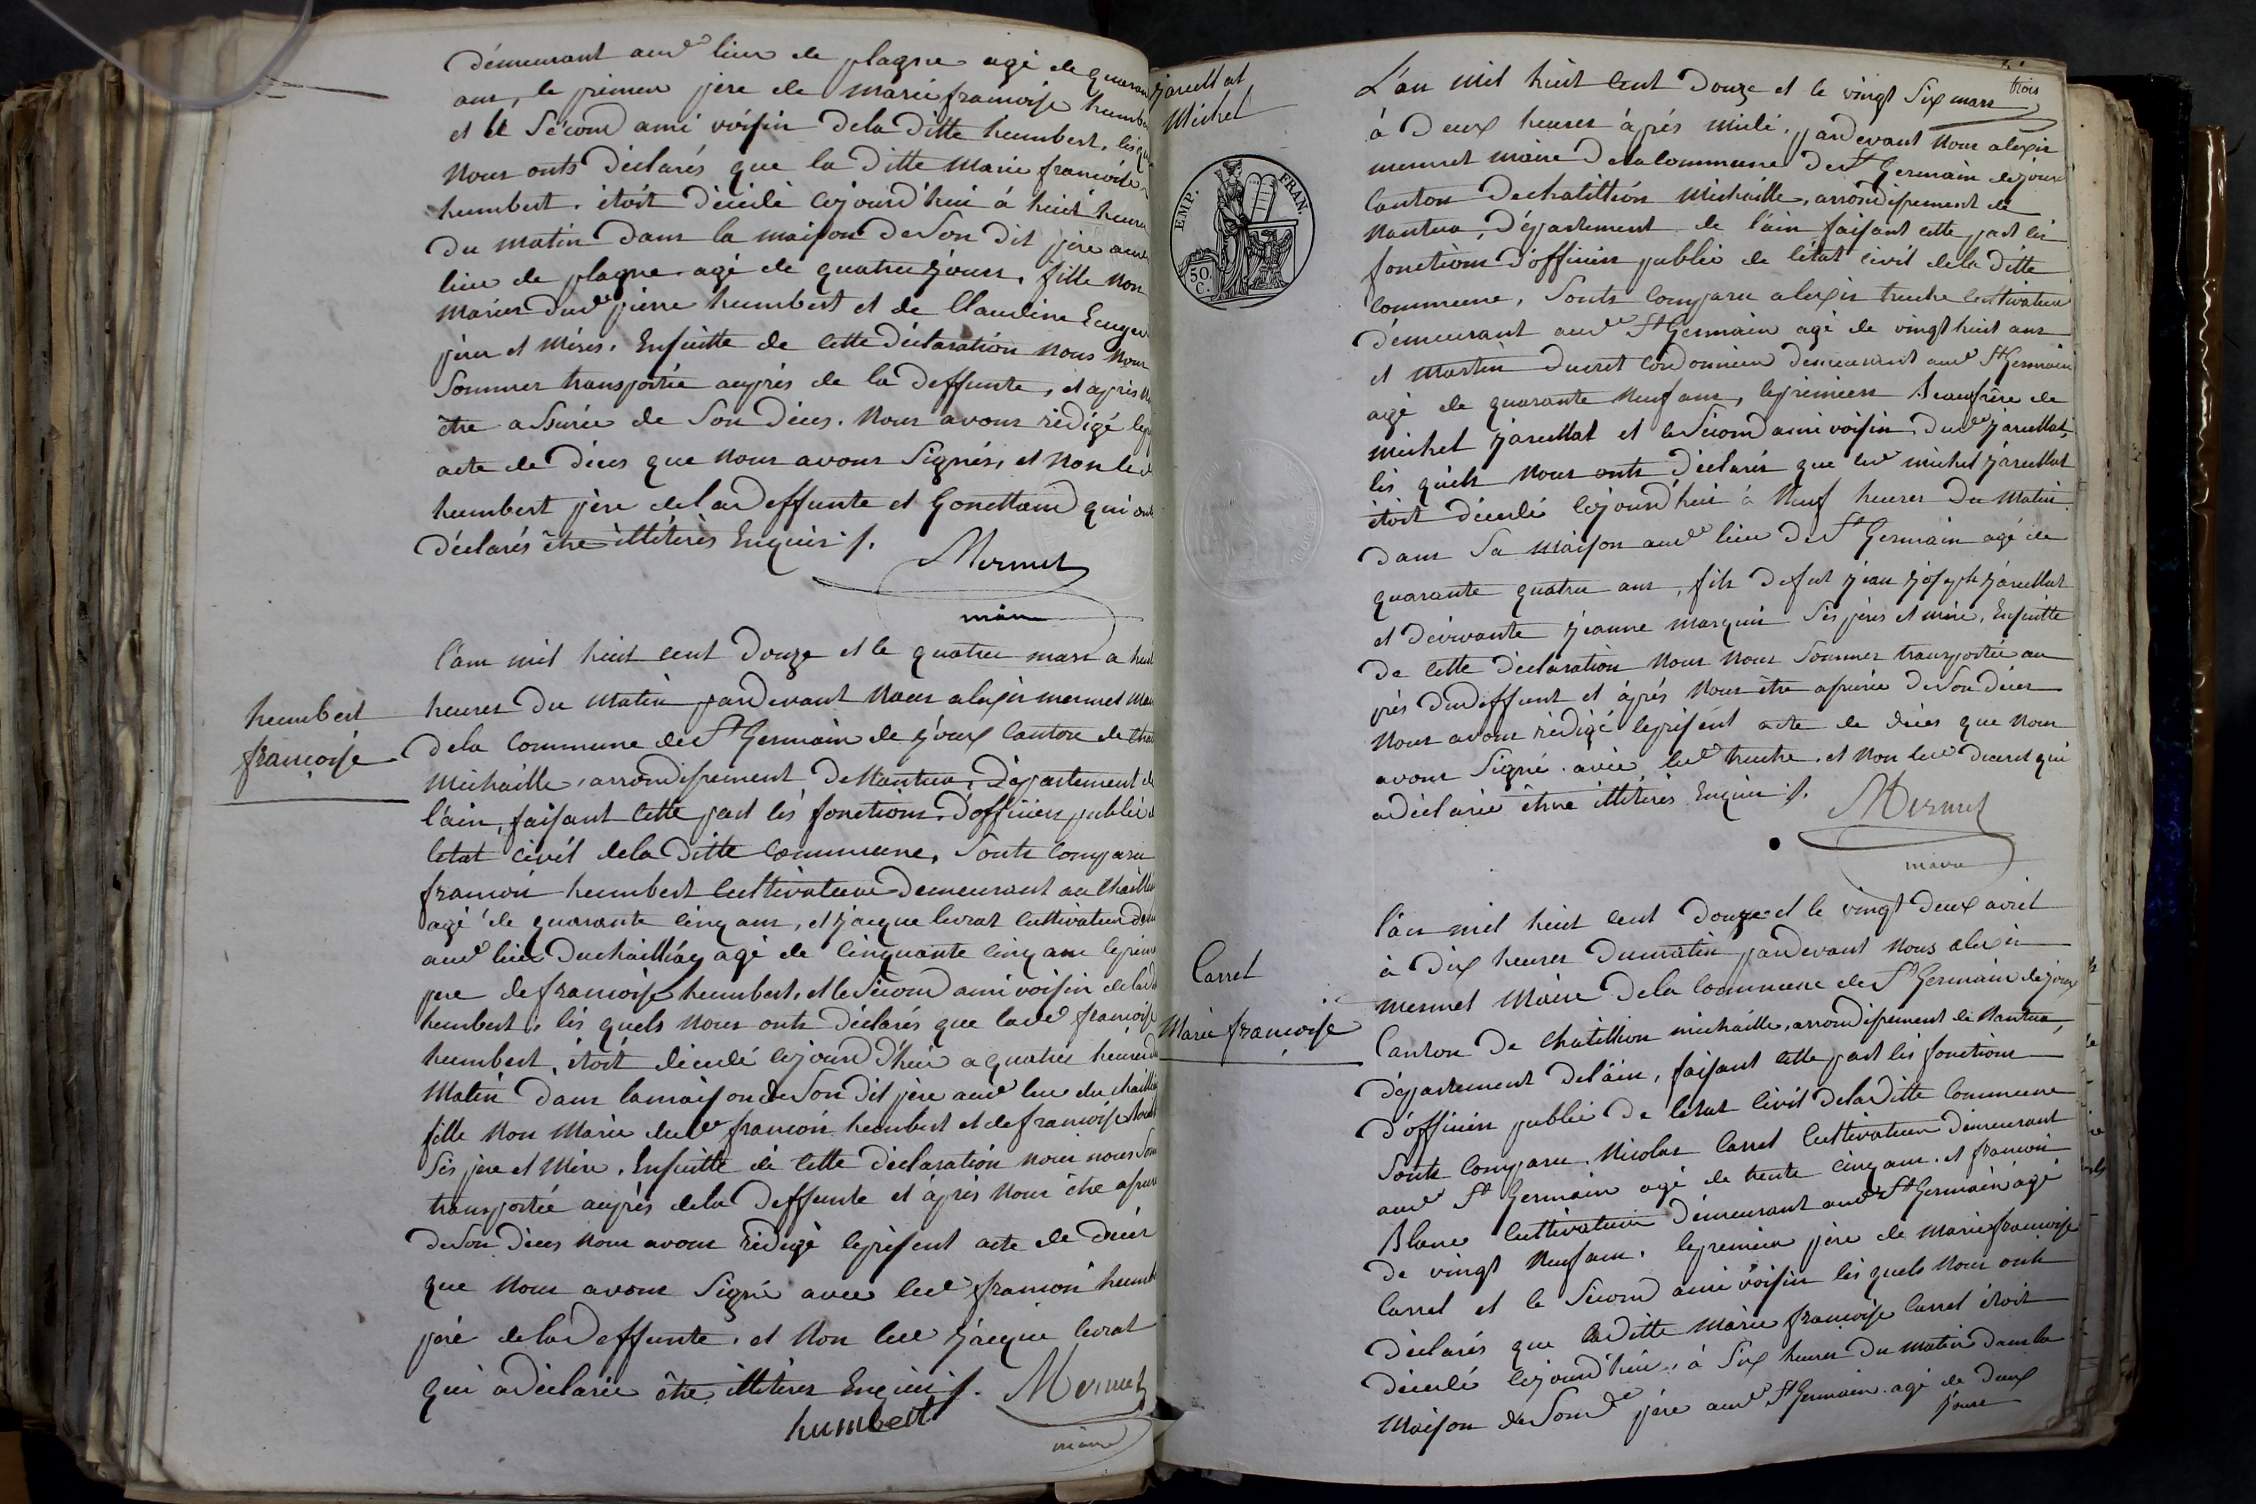 demeurant aud lieu de plagne agé de quaran
ans, le premier pere de marie françoise humbe
et le second ami voisin dela ditte humbert, les q
nous onts déclarés que la ditte marie françoise
humbert, étoit décédé cejourd'hui à huit heures
du matin dans la maison de son dit père aud
lieu de plagne agé de quatre jours, fille non
mariée dud pierre humbert et de Claudine
père et mères. Ensuitte de cette déclaration nous nous
sommes transportés auprès de la deffunte, et après n
être assurés de son déces. nous avons rédigé le p
acte de déces que nous avons signés, et non led
humbert père delad deffunte et Gonettand qui ont
déclarés être illitérés Enquis ./.
Mermet
maire
humbert
françoise
l'an mil huit cent douze et le quatre mars a huit
heures du matin pardevant nous alexis mermet mai
dela commune de St Germain de joux canton de Cha
michaille, arrondissement de Nantua, département de
l'ain, faisant cette part les fonctions d'officier public d
letat civil dela ditte commune, sonts comparu
françois humbert cultivateur demeurant au Chaill
agé de quarante cinq ans, et jacque livrat cultivateur dem
aud lieu du chaill agé de cinquante cinq ans le prem
pere de françoise humbert, et le second ami voisin delad
humbert, les quels nous onts déclarés que lad françoise
humbert, étoit décédé cejourd'hui a quatre heures d
matin dans la maison de son dit père aud lieu du chaill
fille non marié dud françois humbert et de françoise
ses père et mère, Ensuitte dé cette déclaration nous nous som
transportés auprès dela deffunte et après nous être assuré
de son déces nous avons rédigé le présent acte de décés
que nous avons signé avec led françois humbe
pere delad deffunte, et non led jacque livrat
qui a déclaré être illitéres Enquis ./.
humbert
Mermet
maire
trois
jarcellat
Michel
EMP. FRAN.
50 C.
L'an mil huit cent douze et le vingt six mars
à deux heures après midi, pardevant nous alexis
mermet maire dela commune de St Germain de joux
canton de chatillion michaille, arrondissement de
nantua, département de l'ain faisant cette part les
fonctions d'officier public de l'état civil dela ditte
commune, sonts comparu alexis truche cultivateur
demeurant aud St Germain agé de vingt huit ans
et martin ducret cordonnier demeurant aud St Germain
agé de quarante neuf ans, le premiers Beaufrère de
michel jarcellat et le second ami voisin dud jarcellat,
les quels nous onts déclarés que led michel jarcellat
étoit décédé cejourd'hui à neuf heures du matin
dans sa maison aud lieu de St Germain agé de
quarante quatre ans, fils de feu jean joseph jarcellat
et de vivante jeanne marquis ses pères et mère, Ensuitte
de cette déclaration nous nous sommes transportés au
près dud deffunt et après nous être assurés de son déces
nous avons rédigé le présent acte de déces que nous
avons signé avec led truche, et non led ducret qui
a déclaré être illitérés Enquis ./.
Mermet
maire
Carrel
Marie françoise
l'an mil huit cent douze et le vingt deux avril
à dix heures du matin pardevant nous alexis
mermet maire dela commune de St Germain de joux
canton de Chatillion michaille, arrondissement de Nantua,
département del'ain, faisant cette part les fonctions
d'officier public de létat civil dela ditte commune
sonts comparu, Nicolas Carrel cultivateur demeurant
aud St Germain agé de trente cinq ans, et françois
Blanc cultivateur demeurant aud St Germain agé
de vingt neuf ans, le premier père de marie françoise
Carrel et le second ami voisin les quels nous onts
déclarés que ladditte marie françoise Carrel étoit
décédé cejourd'hui, à six heures du matin dans la
maison de son d père aud St Germain agé de deux
jours